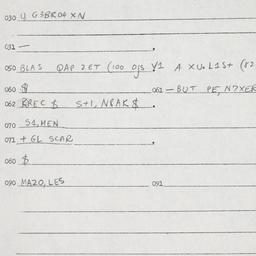 030 4 G3BR04 XN
031 —
050 BLAS QAP ZET (100 0JS Y1 A XU. L1S+ (82
060 $ 061 — BUT PE, N7XER
062 RREC $ S+1, NRAK $
070 S1, MEN
071 + GL SCAR
080 $
090 MAZO, LES 091